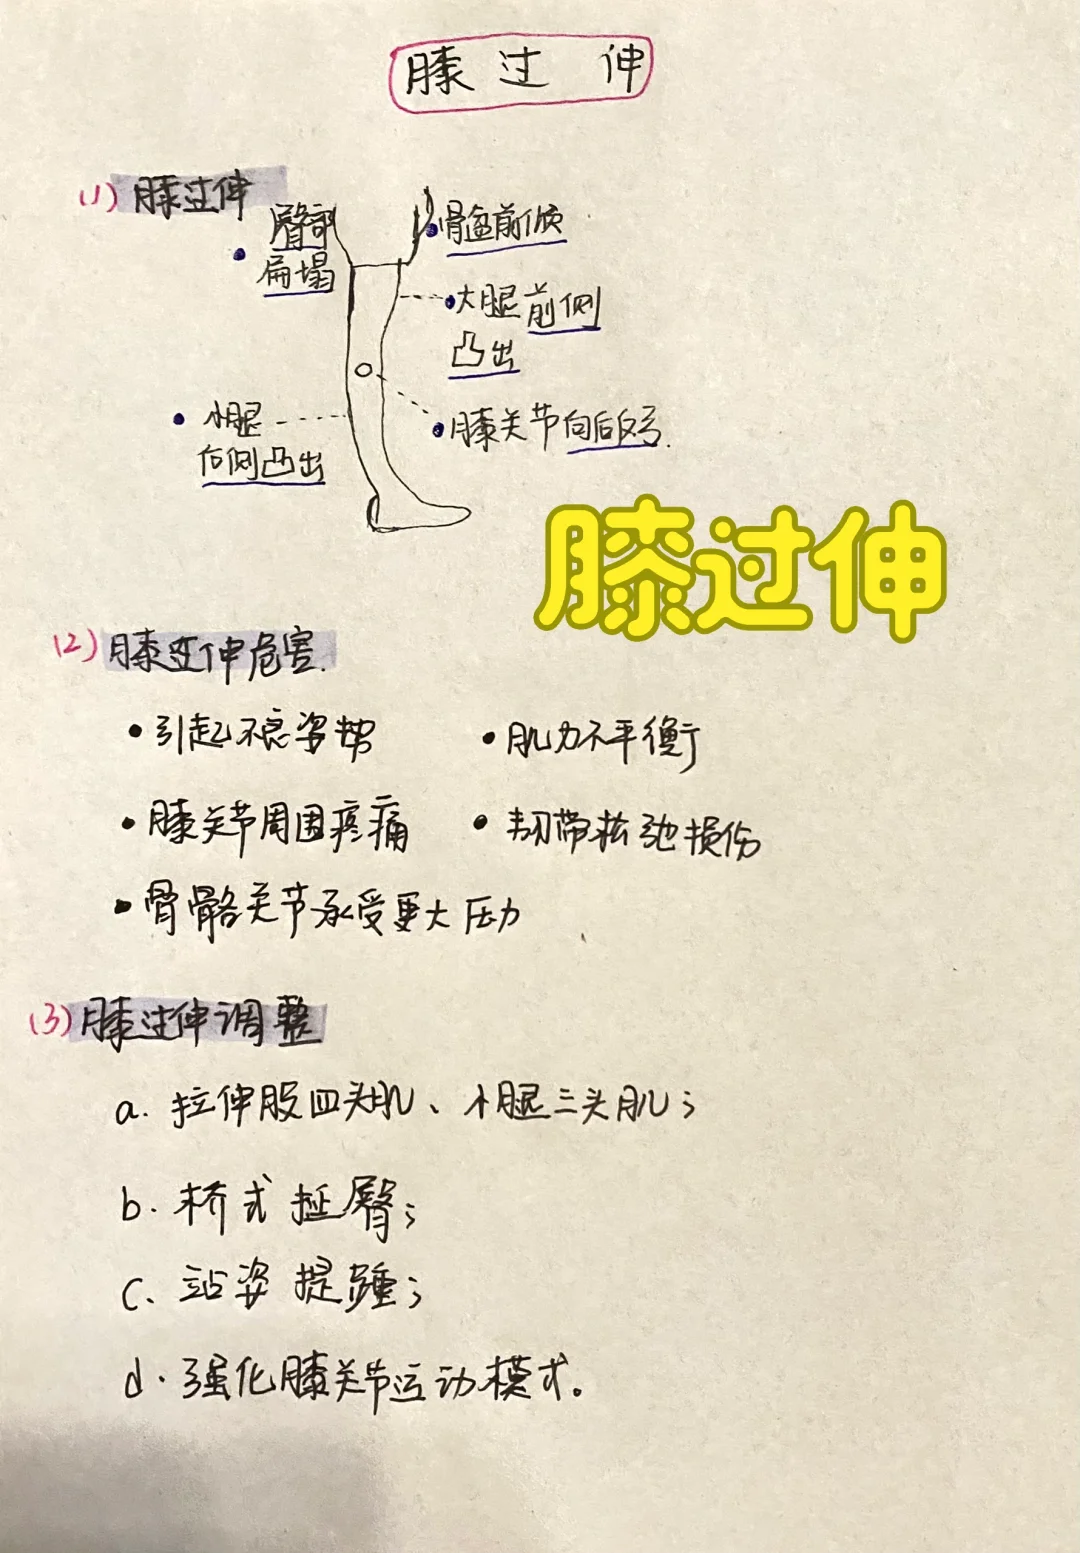 膝过伸
(1) 膝过伸
臀部
扁塌
骨盆前倾
大腿前侧
凸出
膝关节向后反弓.
小腿
后侧凸出
膝过伸
(2) 膝过伸危害.
•引起不良姿势
•肌力不平衡
•膝关节周围疼痛
•韧带松弛损伤
•骨骼关节承受更大压力
(3) 膝过伸调整
a. 拉伸股四头肌、小腿三头肌;
b. 桥式挺臀;
c. 站姿提踵;
d. 强化膝关节运动模式。